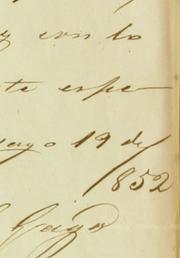 y con lo
te espe
ayo 19 de
1852